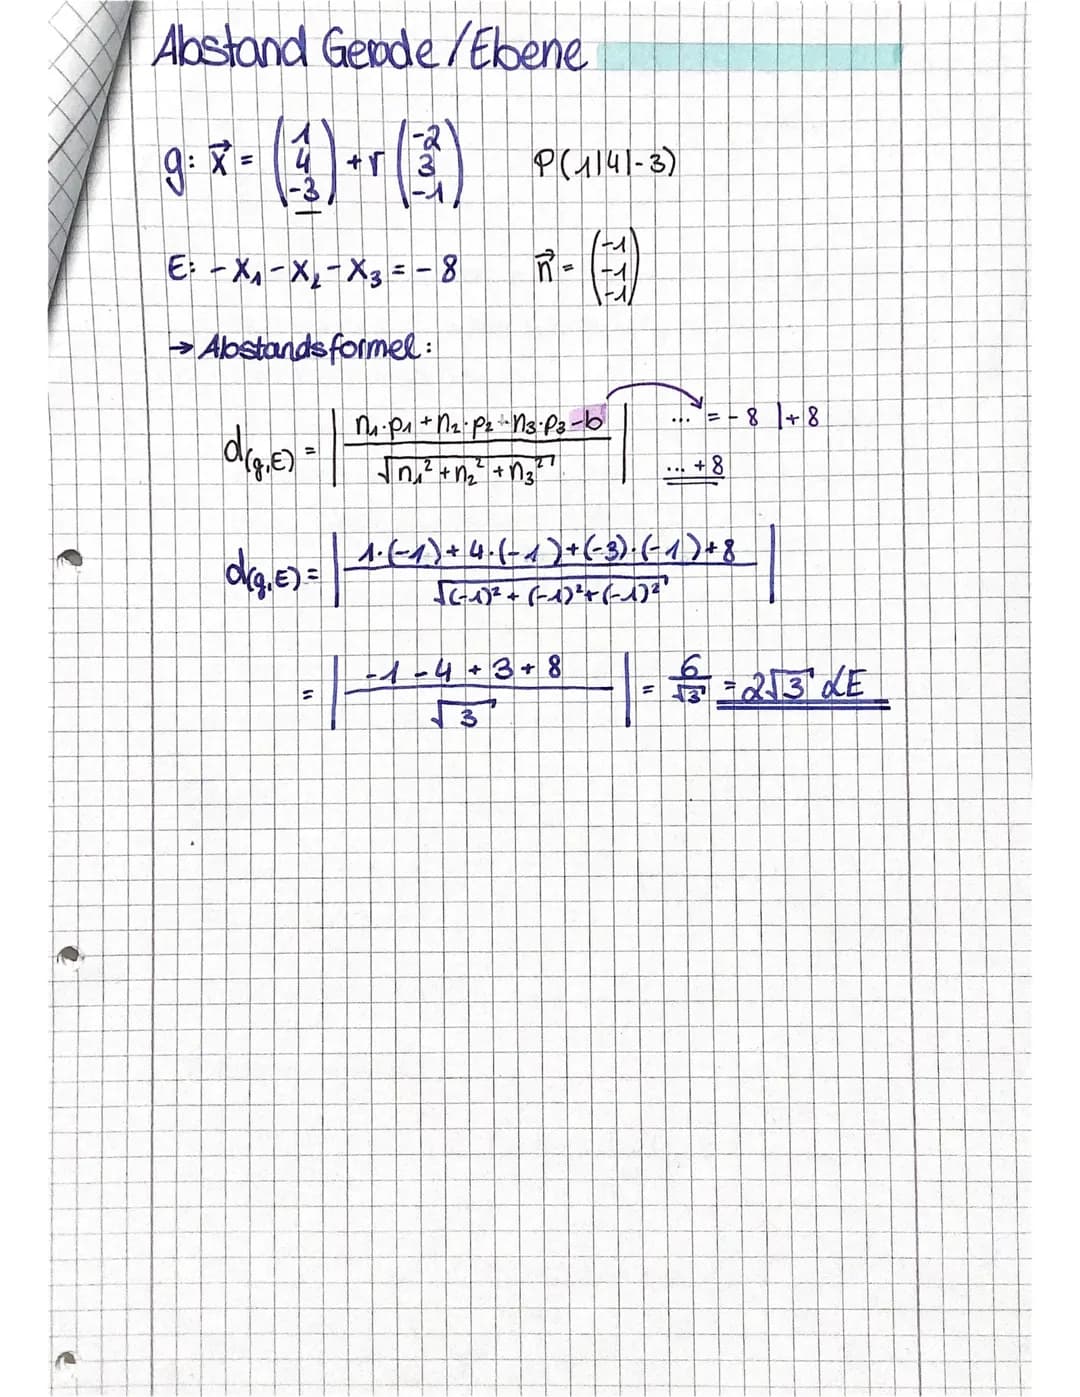 Abstand Gerade/Ebene
g: x⃗ = (1 4 -3) + r (-2 3 -1) P(1|4|-3)
E: -x₁-x₂-x₃ = -8 n⃗ = (-1 -1 -1)
→ Abstandsformel:
d(g,E) = | (n₁·p₁+n₂·p₂+n₃·p₃-b) / √(n₁²+n₂²+n₃²) | ... = -8 |+8
... +8
d(g,E) = | (1·(-1)+4·(-1)+(-3)·(-1)+8) / √((-1)²+(-1)²+(-1)²) |
= | (-1-4+3+8) / √3 | = 6/√3 = 2√3 LE